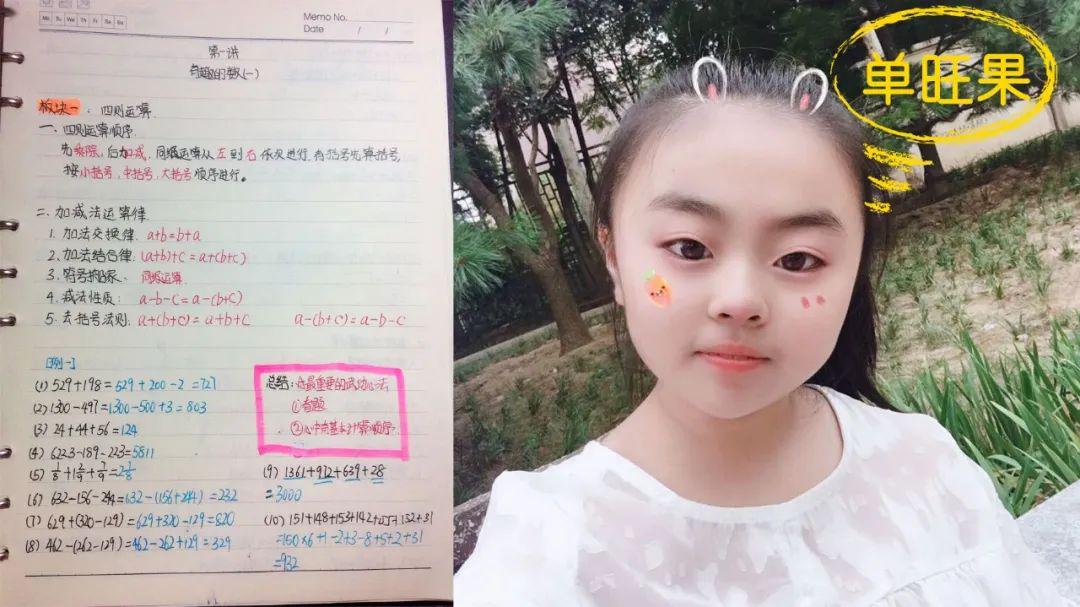 Memo No.
Date / /
Mo Tu We Th Fr Sa Su
第一讲
奇趣的数(一)
板块一：四则运算.
一.四则运算顺序.
先乘除,后加减,同级运算从左到右依次进行,有括号先算括号,
按小括号,中括号,大括号顺序进行。
二.加减法运算律
1.加法交换律. a+b=b+a
2.加法结合律:(a+b)+c=a+(b+c)
3.符号搬家、同级运算.
4.减法性质: a-b-c=a-(b+c)
5.去括号法则:a+(b+c)=a+b+c a-(b+c)=a-b-c
[例一]
(1) 529+198=529+200-2=727
(2) 1300-497=1300-500+3=803
(3) 24+44+56=124
(4) 6223-189-223=5811
(6) 632-156-244=632-(156+244)=232
(7) 629+(320-129)=629+320-129=820
(8) 462-(262-129)=462-262+129=329
总结:
①看题
②心中有基本计算顺序.
(9) 1361+972+639+28
=3000
(10) 151+148+153+142+155+132+31
=150×6+1-2+3-8+5+2+31
=932
单旺果